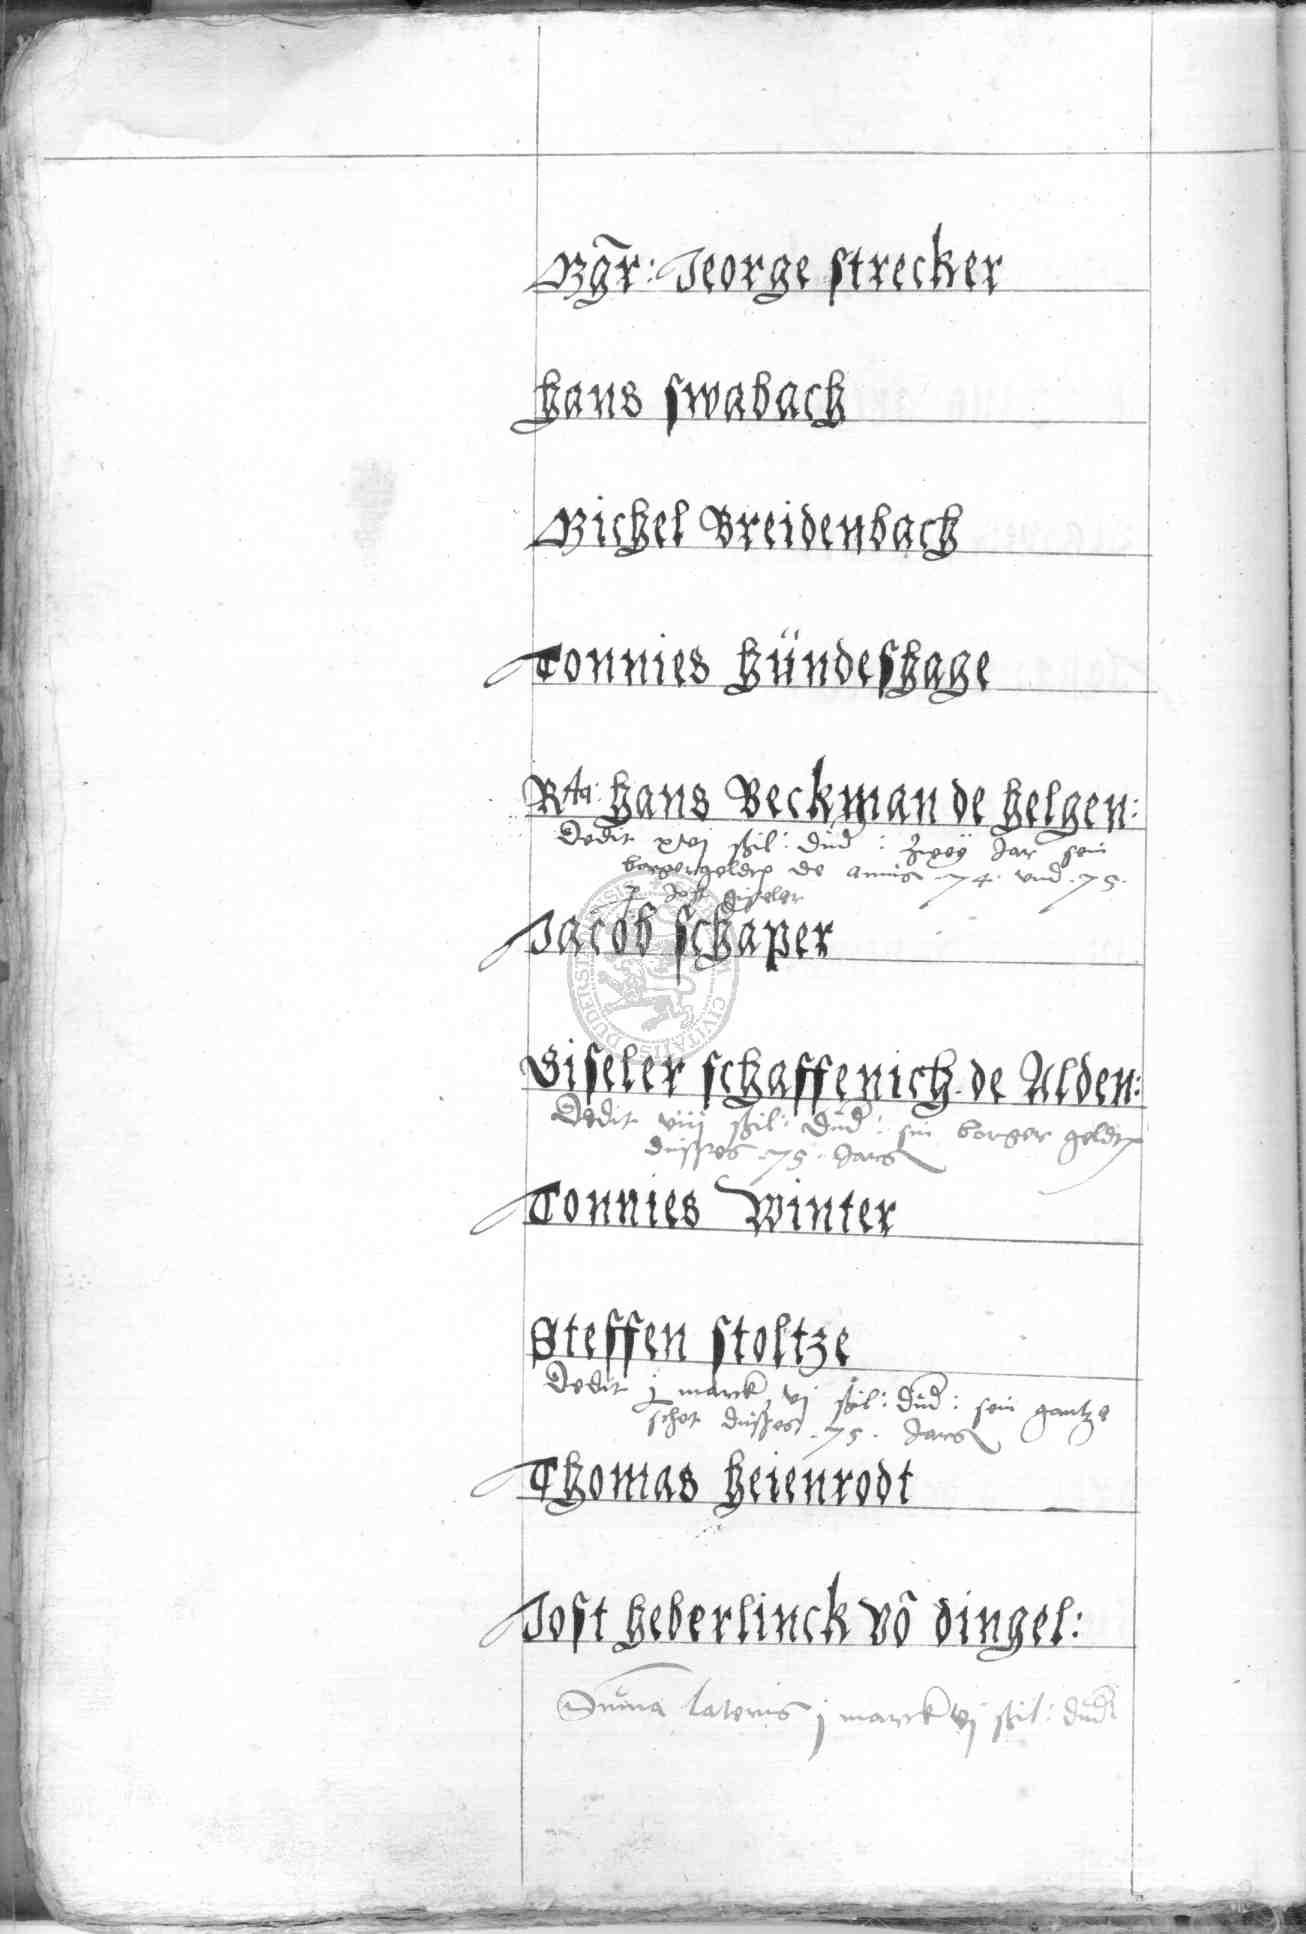 Mgr̃: Jeorge Strecker
Hans Swabach
Michel Breidenbach
Tonnies Hündeshage
Hans Beckman de Helgen:
Dedit xvj ßil: dud: zwey Jar sein
borgergeldt de annis .74. vnd .75.
p Jost Giseler
Jacob Schaper
Giseler Schaffenicht de Alden:
Dedit viij ßil: dud: sin borger geldt
dusses .75. Jars
Tonnies Winter
Steffen Stoltze
Dedit j marck vj ßil: dud: sein gantze
schot dusses .75. Jars
Thomas Heienrodt
Jost Heberlinck võ Dingel:
Sum̃a lateris j marck vj ßil: dud
SIGILLUM CIVITATIS DUDERSTADENSIS